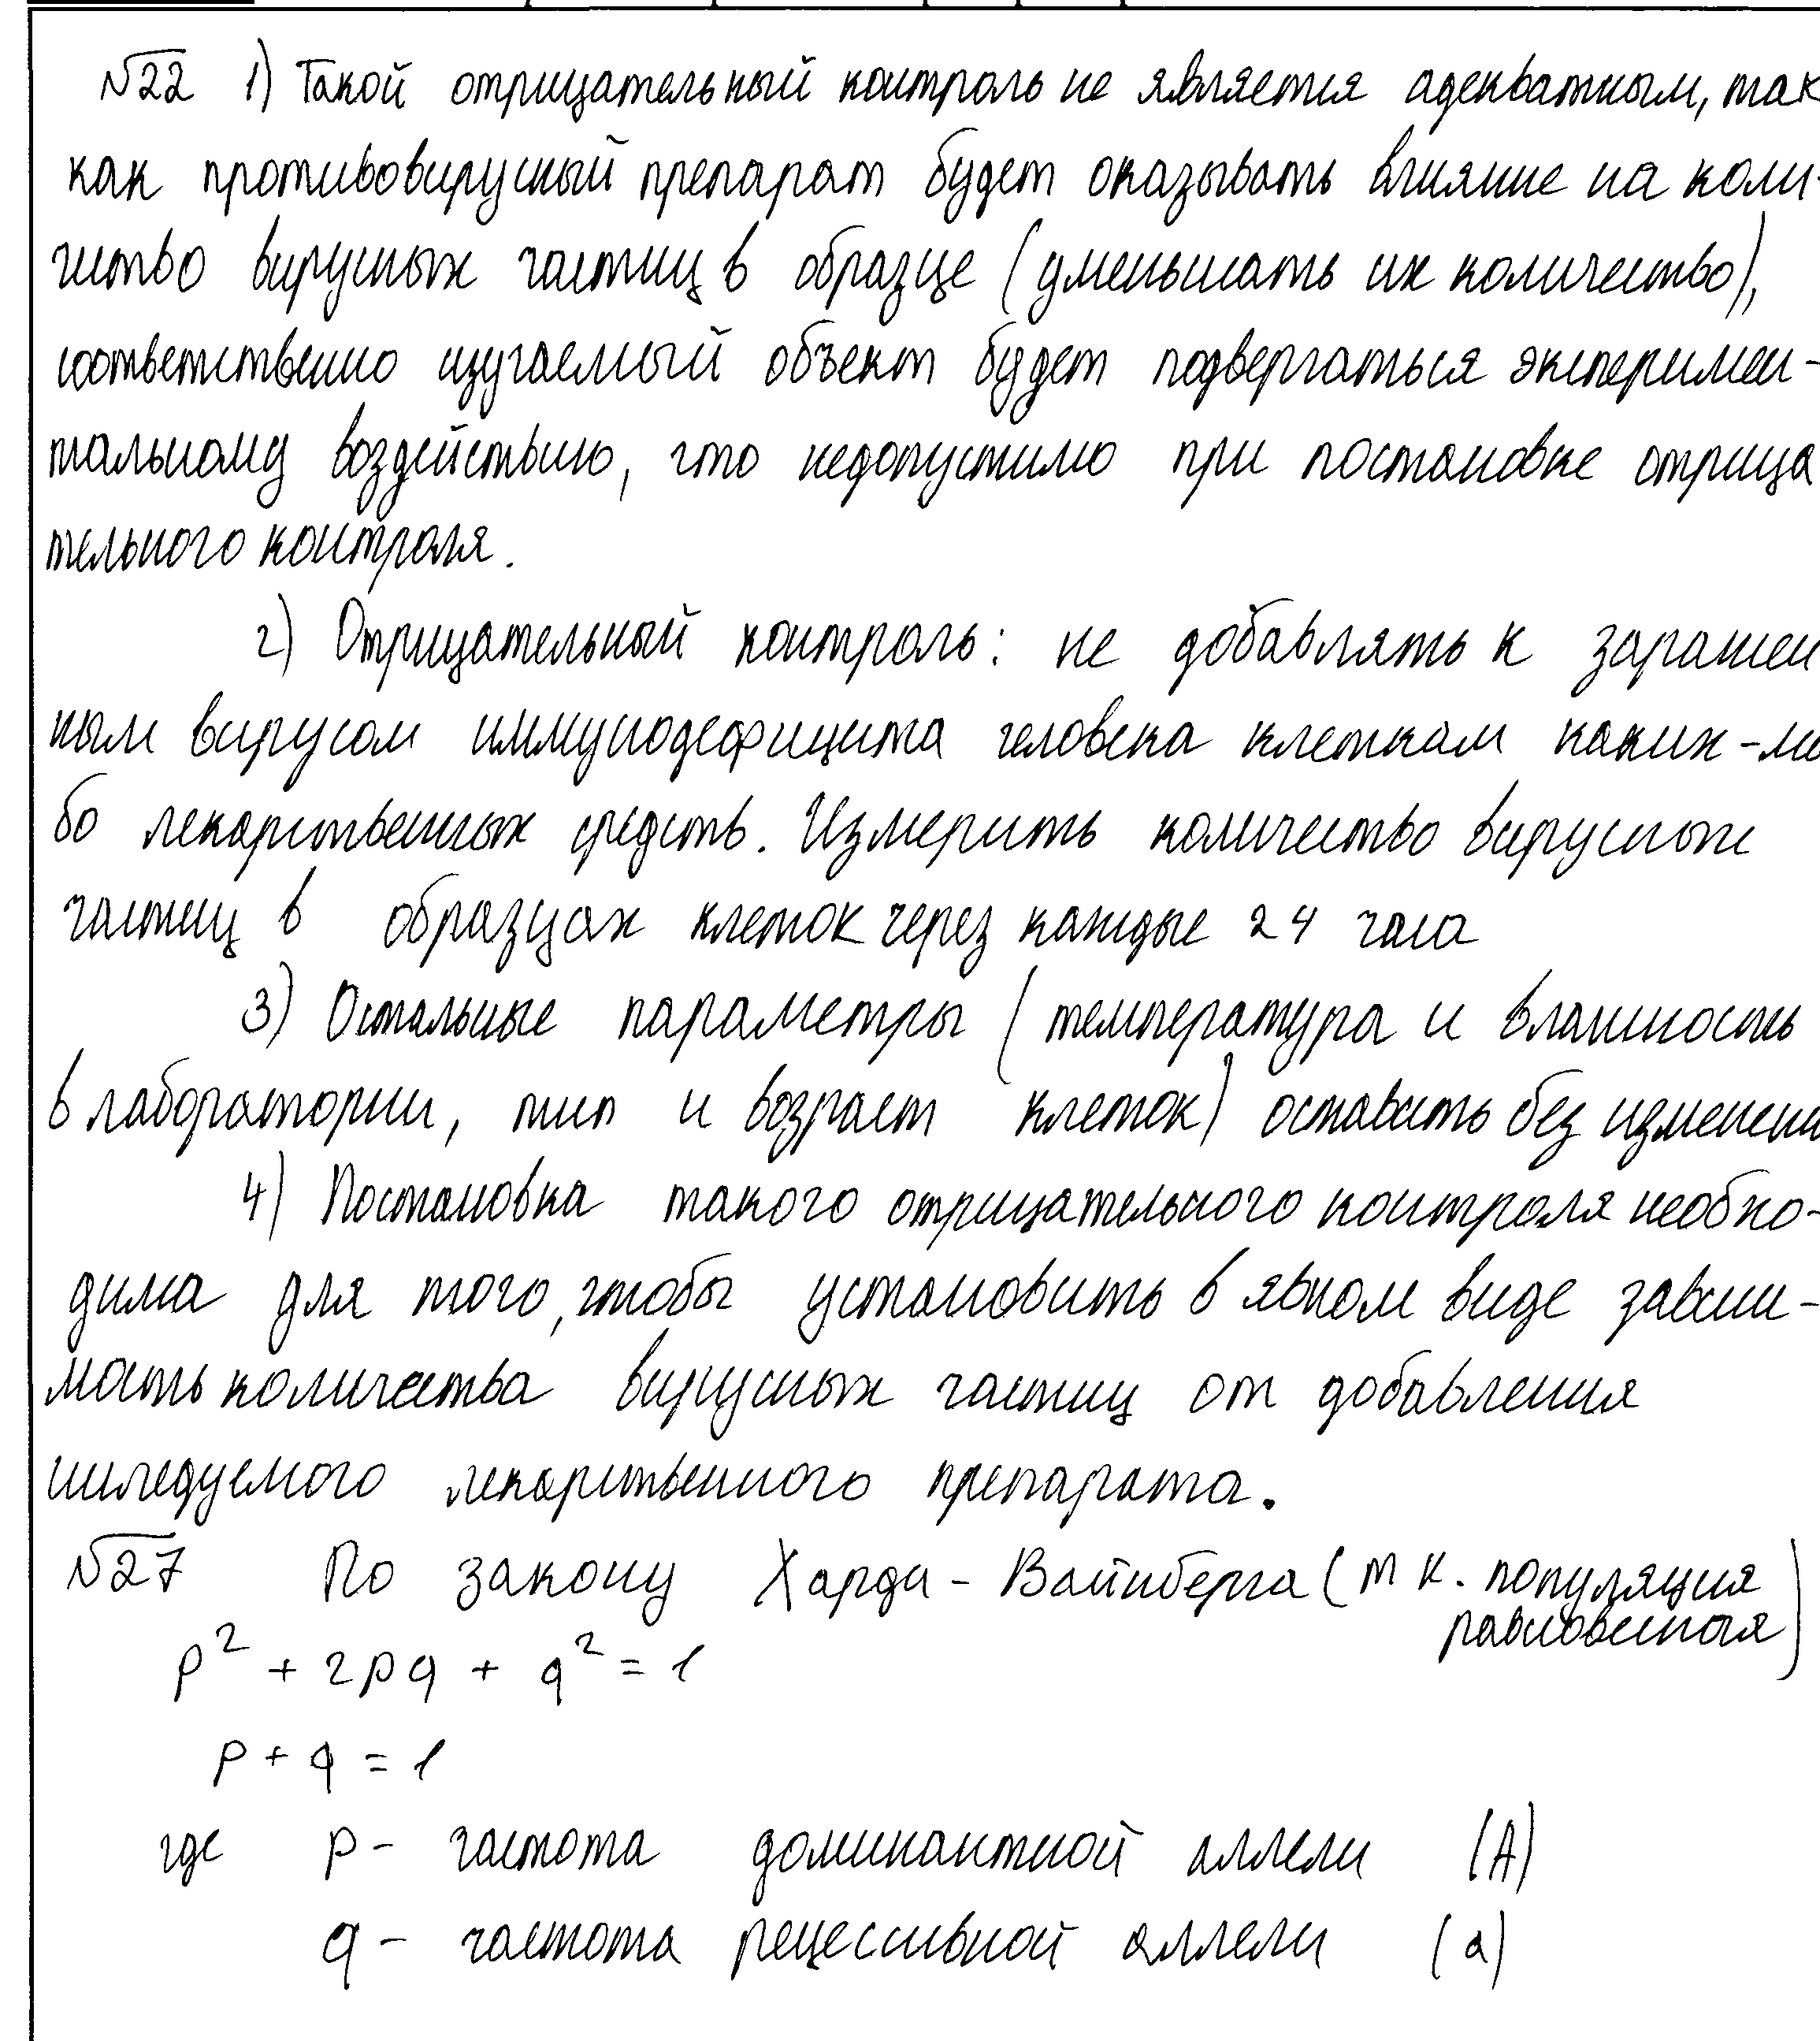 №22 1) Такой отрицательный контроль не является адекватным, так
как противовирусный препарат будет оказывать влияние на коли-
чество вирусных частиц в образце (уменьшать их количество),
соответственно изучаемый объект будет подвергаться эксперимен-
тальному воздействию, что недопустимо при постановке отрица
тельного контроля.
2) Отрицательный контроль: не добавлять к заражен
ным вирусом иммунодефицита человека клеткам каких-ли
бо лекарственных средств. Измерить количество вирусных
частиц в образцах клеток через каждые 24 часа
3) Остальные параметры (температура и влажность
в лаборатории, тип и возраст клеток) оставить без изменени
4) Постановка такого отрицательного контроля необхо-
дима для того, чтобы установить в явном виде зависи-
мость количества вирусных частиц от добавления
исследуемого лекарственного препарата.
№27 По закону Харди - Вайнберга (т к. популяция
равновесная)
p² + 2pq + q² = 1
p + q = 1
где p - частота доминантной аллели (A)
q - частота рецессивной аллели (a)